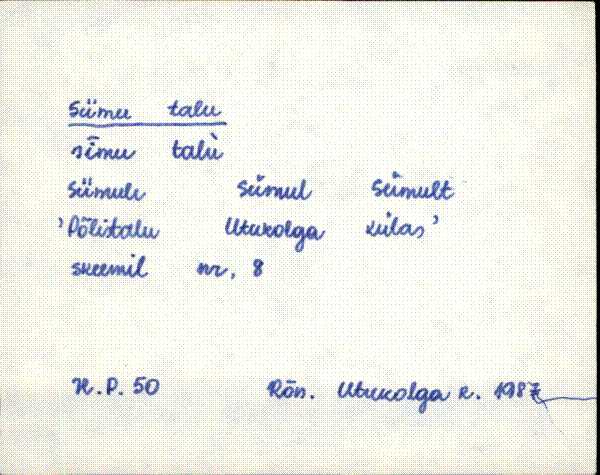 Siimu talu
sīmu talù
Siimule Siimul Siimult
'Põlistalu Utukolga külas'
skeemil nr. 8
H.P. 50 Rõn. Utukolga k. 1987